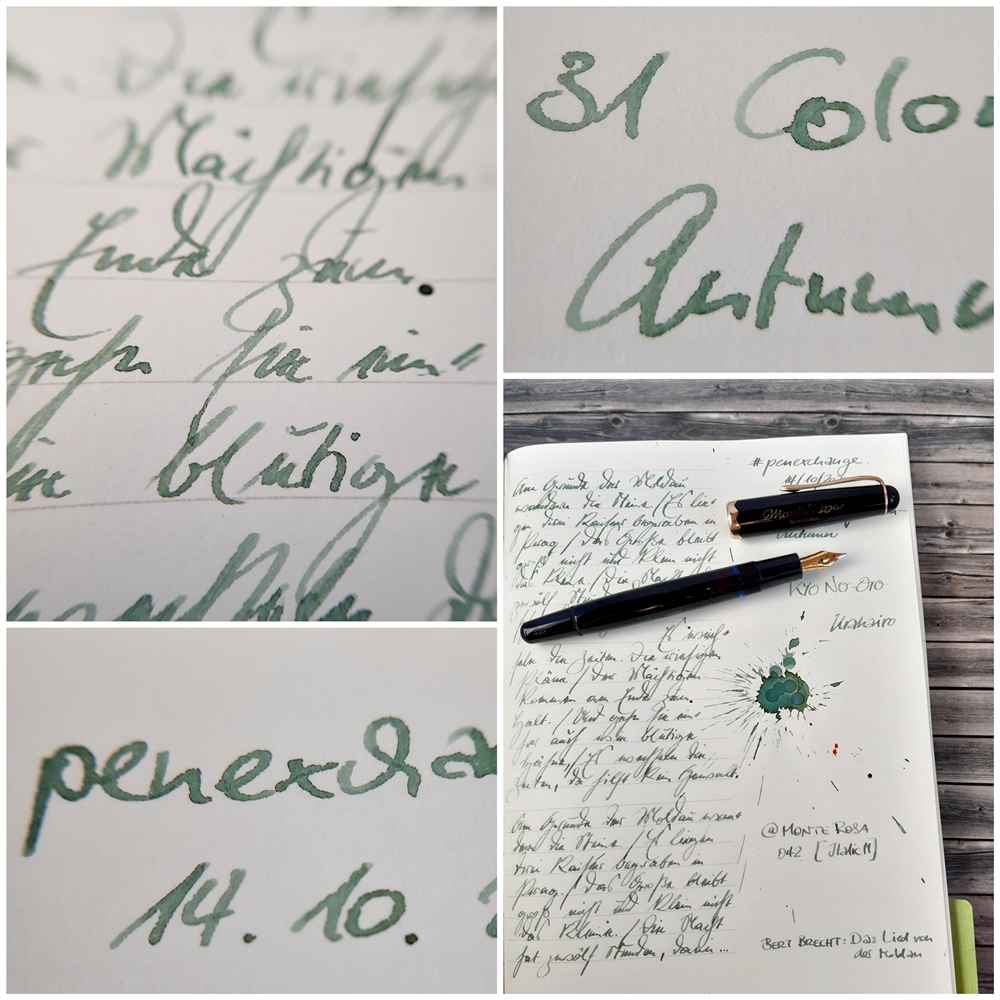 Die riesig
Mächtigen
Ende zum
gehn sie ein-
blutige
31 Colo
Autumn
penexcha
14. 10.
#penexchange
14/10/20
Autumn
Kyo No-Oto
Urahairo
Am Grunde der Moldau
wandern die Steine / Es lie-
gen drei Kaiser begraben in
Prag. / Das Große bleibt
groß nicht und klein nicht
das Kleine. / Die Nacht
zwölf Stunden
Es wech-
seln die Zeiten. Die riesigen
Pläne / der Mächtigen
kommen am Ende zum
Halt. / Und gehn sie ein-
her auch wie blutige
Hähne / Es wechseln die
Zeiten, da hilft kein Gewalt.
Am Grunde der Moldau wan-
dern die Steine / Es liegen
drei Kaiser begraben in
Prag. / Das Große bleibt
groß nicht und klein nicht
das Kleine. / Die Nacht
hat zwölf Stunden, dann...
@MONTE ROSA
042 [Italic M]
BERT BRECHT: Das Lied von
der Moldau